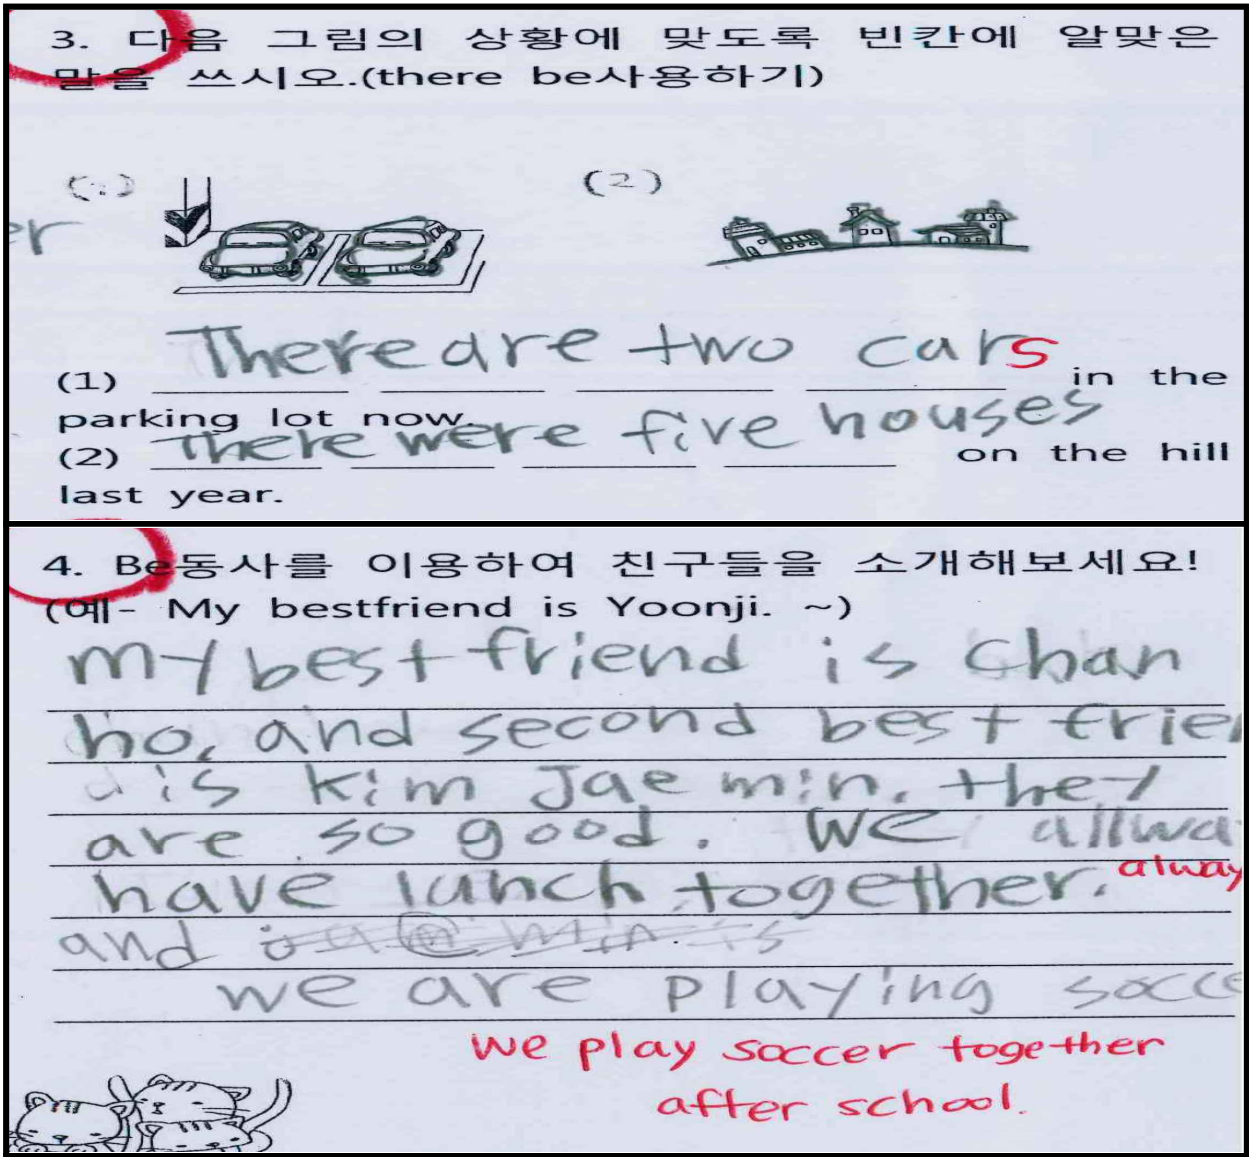 3. 다음 그림의 상황에 맞도록 빈칸에 알맞은
말을 쓰시오.(there be사용하기)
(1) (2)
er
(1) There are two cars in the
parking lot now.
(2) There were five houses on the hill
last year.
4. Be동사를 이용하여 친구들을 소개해보세요!
(예- My bestfriend is Yoonji. ~)
my best friend is Chan
ho, and second best frien
d is kim Jae min. they
are so good. We allwa
have lunch together. alway
and
we are playing socce
We play soccer together
after school.